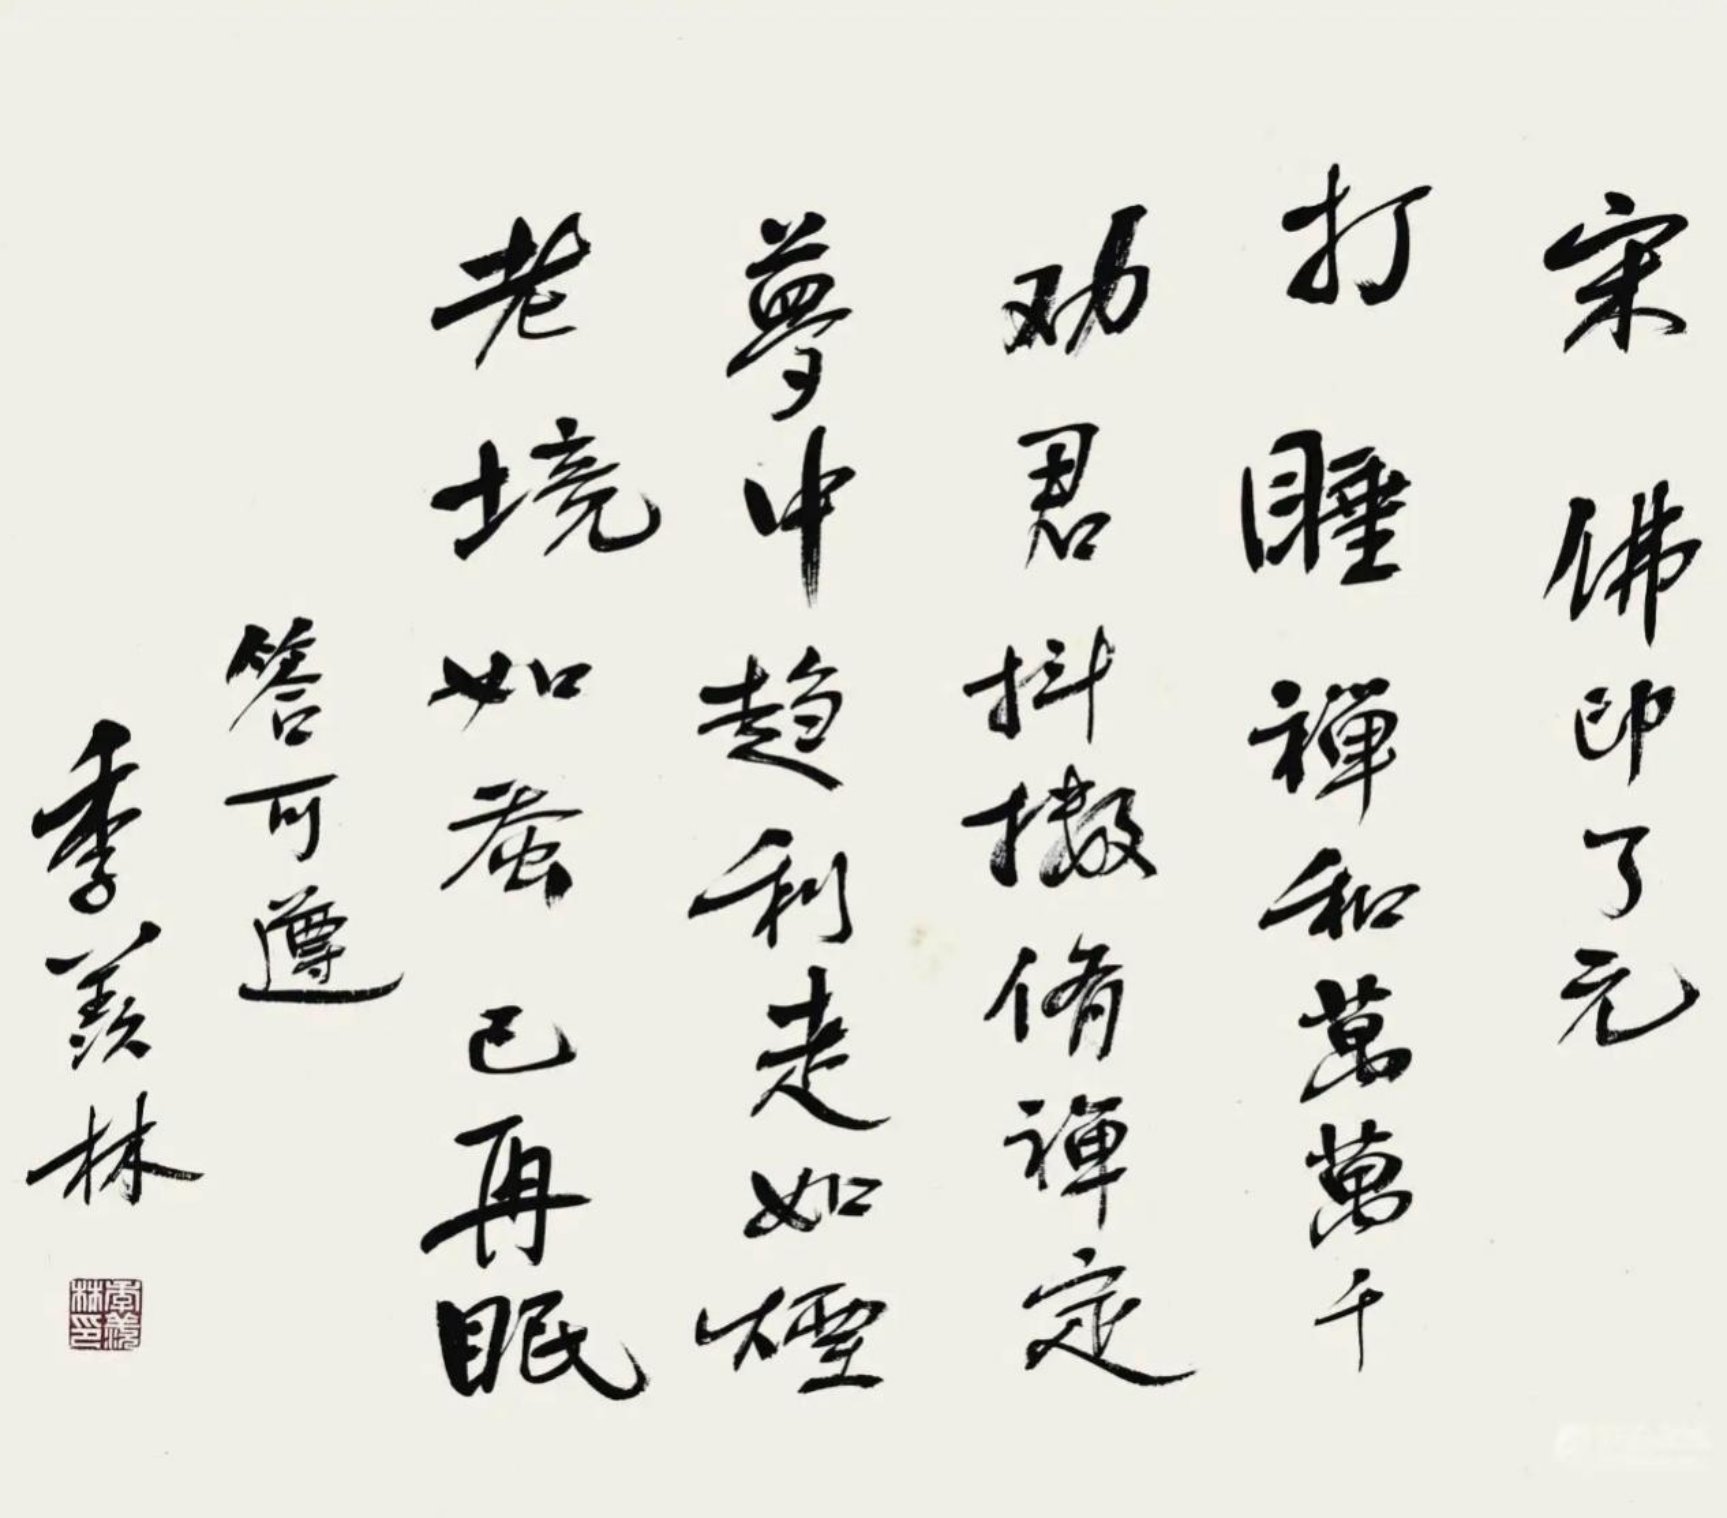 宋 佛印了元
打睡禅和萬萬千
劝君抖擞脩禅定
夢中趋利走如煙
老境如蚕已再眠
答可遵
季羡林
季羡林印